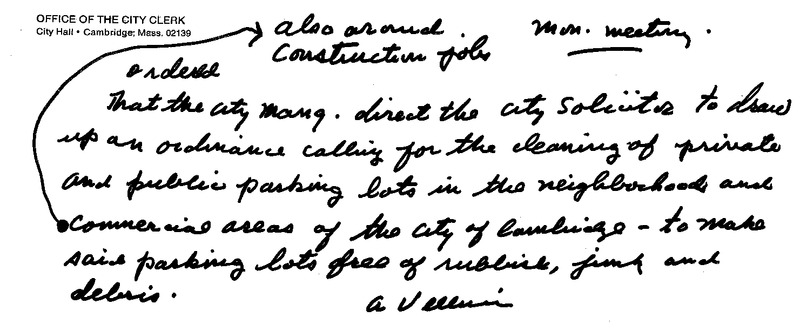 OFFICE OF THE CITY CLERK
City Hall • Cambridge, Mass. 02139
also around
Construction jobs
Mon. meeting.
ordered
That the city Mang. direct the city Soliciter to draw
up an ordinance calling for the cleaning of private
and public parking lots in the neighborhoods and
Commercial areas of the city of Cambridge - to make
said parking lots free of rubbish, junk and
debris.
a Vellucci